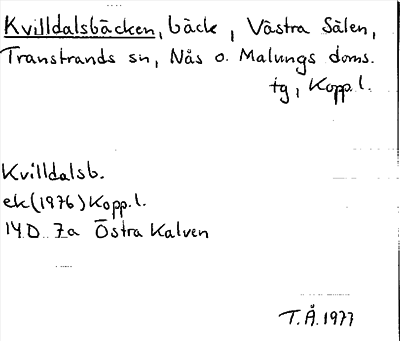 Kvilldalsbäcken, bäck, Västra Sälen,
Transtrands sn, Nås o. Malungs doms.
tg, Kopp.l.
Kvilldalsb.
ek(1976)Kopp.l.
14D 7a Östra Kalven
T.Å.1977